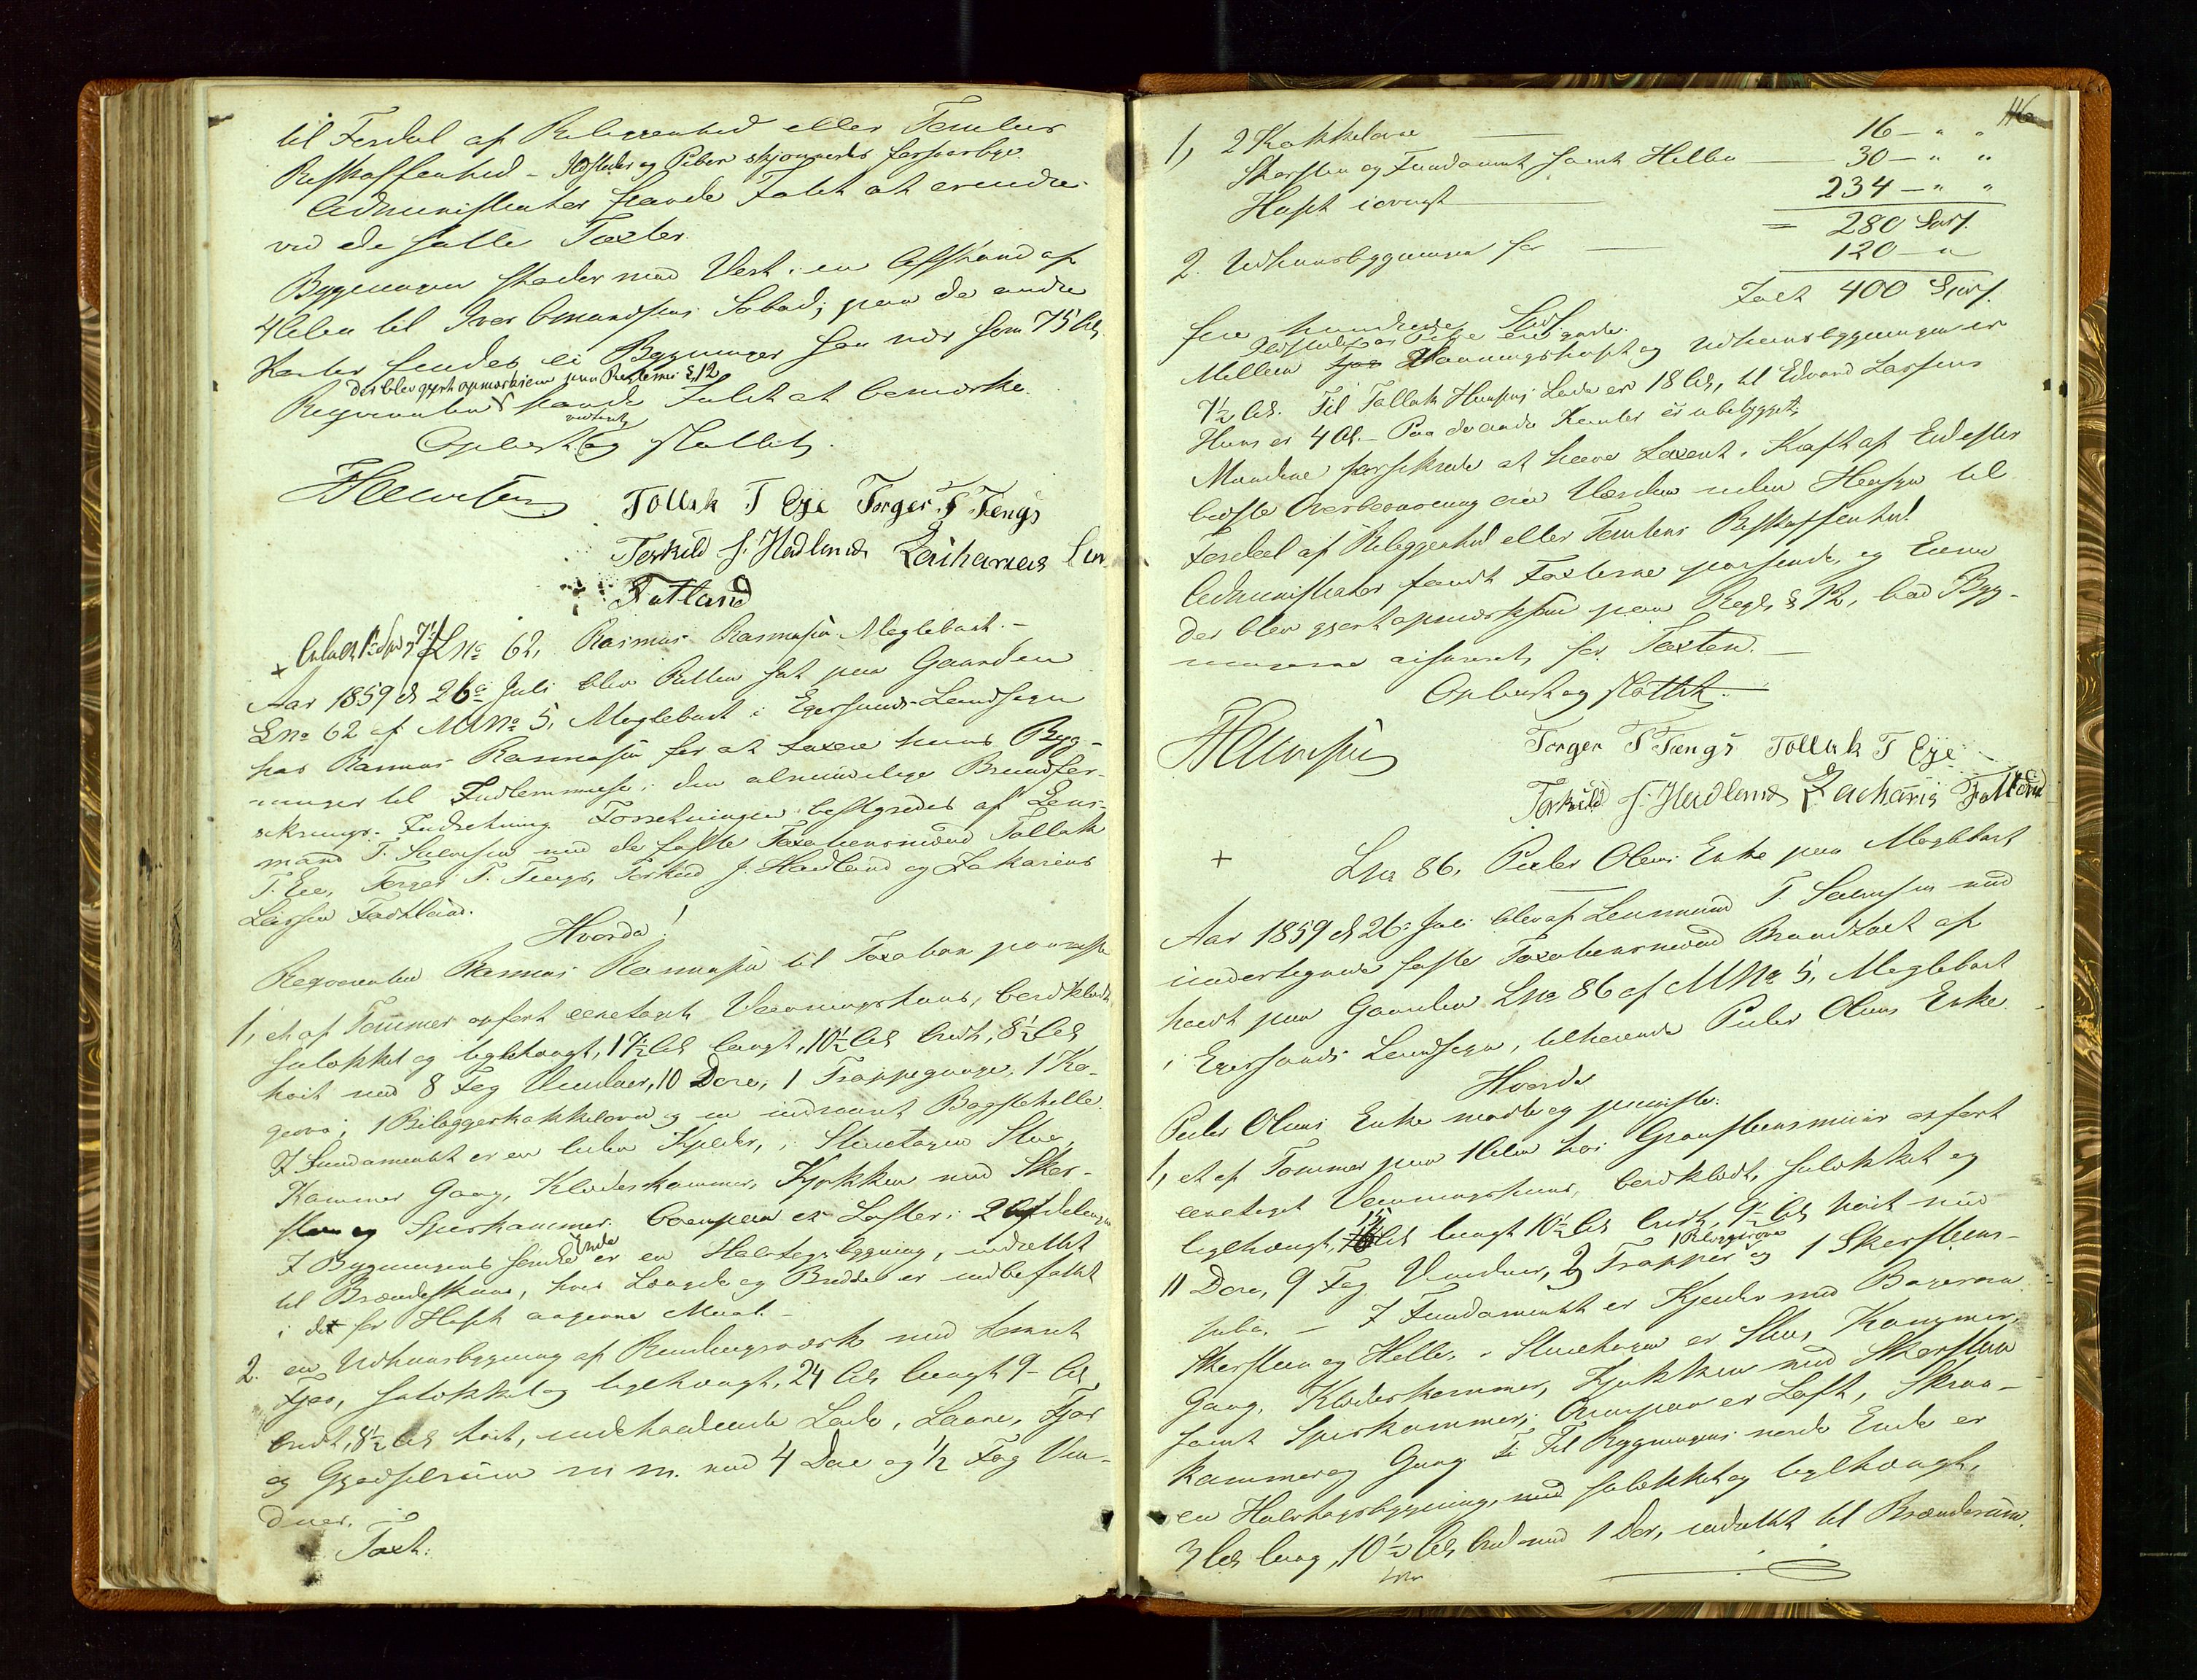 til Fordel af Beliggenhed eller Tomtens
Beskaffenhed – Ildsteder og Piber skjønnedes forsvarlige.
Administrator havde Intet at erindre
ved de satte Taxter.
Bygningen støder mod Vest i en Afstand af
4 Alen til Iver Omundsens Søbod; paa de andre
Kanter findes ei Bygninger saa nær som 75 Al.
der blev gjort opmærksom paa Reglernes § 12
Reqvirenten havde Intet at bemærke.
vedtaget
Oplæst og sluttet.
TSvendsen
Tollak T Eÿe Torger T Tengs
Torkild J. Hadland Zacharias Lar
Fotland
+ Anlæst 1ste Spd 71
Lno 62, Rasmus Rasmusen Meglebust. –
Aar 1859 d 26de Juli blev Retten sat paa Gaarden
Lno 62 af MNo 5, Meglebust i Egersunds Landsogn
hos Rasmus Rasmusen for at taxere hans Byg-
ninger til Indlemmelse i den almindelige Brandfor-
sikrings-Indretning. Forretningen bestyredes af Lens-
mand T. Svendsen med de faste Taxationsmænd Tollak
T. Eie, Torger T. Tengs, Torkild J. Hadland og Zakarias
Larsen Fotland.
Hvorda!
Reqvirenten Rasmus Rasmusen til Taxation paaviste
1, et af Tømmer opført eenetages Vaaningshuus, bordklædt
panlakket og teglhængt, 17½ Al. langt, 10½ Al. bredt, 8½ Al.
høit med 8 Fag Vinduer, 10 Døre, 1 Trappegange, 1 Ka-
geovn, 1 Bilæggerkakkelovn og en indmuret Bagstehelle.
I Fundamentet er en liden Kjelder, i Stueetagen Stue,
Kammer Gang, Klædeskammer, Kjøkken med Skor-
sten og Spisekammer. Ovenpaa er Lofter i 2 Afdelinger
I Bygningens søndre Ende er en Halvtagsbygning, indrettet
til Brændeskuur, hvis Længde og Bredde er indbefattet
i det for Huset angivne Maal. –
2. en Udhuusbygning af Bindingsværk med tømret
Fjøs, panlakket og teglhængt, 24 Al. langt 9 – Al.
bredt, 8½ Al. høit, indeholdende Lade, Laave, Fjøs
og Gjødselrum m m. med 4 Døre og ½ Fag Vin-
duer.
Taxt:
116
1, 2 Kakkelovne — 16 – " "
Skorsten og Fundament samt Helle — 30 – " "
Huset iøvrigt — 234 – " "
= 280 Spd.
2. Udhuusbygningen for — 120 – "
Taxt 400 Spd.
fire hundrede Spd.
Mellem Vaaningshuset og Udhuusbygningen er
7½ Al. Til Tollak Hansens Lade er 18 Al., til Edvard Larsens
Huus er 4 Al. – Paa de andre Kanter er ubebygget.
Mændene forsikrede at have taxeret i Kraft af Ed efter
bedste Overbeviisning om Værdien uden Hensyn til
Fordel af Beliggenhed eller Tomtens Beskaffenhed.
Administrator fandt Taxterne passende, og Eieren
der blev gjort opmærksom paa Regl. § 12, bad Byg-
ningerne assureret for Taxten. –
Oplæst og sluttet.
TSvendsen
Torger T Tengs Tollak T Eÿe
Torkild J. Hadland Zacharis Fotland
+
Lno 86. Peder Olsens Enke paa Meglebust
Aar 1859 d 26de Juli blev af Lensmand T. Svendsen med
undertegnede faste Taxationsmænd Brandtaxt af
holdt paa Gaarden Lno 86 af MNo 5, Meglebust
i Egersunds Landsogn, tilhørende Peder Olsens Enke.
Hvorda
Peder Olsens Enke mødte og paaviste:
1, et af Tømmer paa 1 Alen høi Graastensmuur opført
eenetages Vaaningshuus, bordklædt, panlakket og
15
teglhængt, Al. langt 10½ Al. bredt, 9½ Al. høit med
1 Bilæggerovn
11 Døre, 9 Fag Vinduer, 2 Trapper og 1 Skorsteens-
pibe. – I Fundamentet er Kjelder med Bagerovn
Skorsteen og Helle, i Stueetagen er Stue, Kammer,
Gang, Klædeskammer, Kjøkken med Skorsteen
samt Spisekammer; Ovenpaa er Loft, Skraa-
kammer og Gang Til Bygningens nordre Ende er
en Halvtagsbygning, med panlakket og teglhængt,
3 Al. lang, 10½ Al. bred med 1 Dør, indrettet til Brænderum.